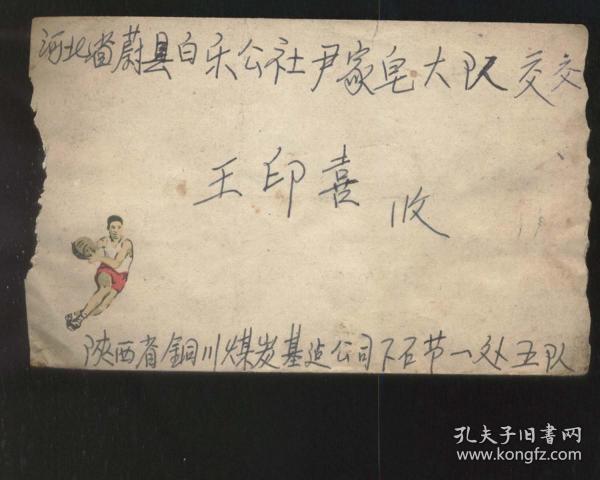 河北省蔚县白乐公社尹家皂大队交交
王印喜 收
陕西省铜川煤炭基造公司下石节一处五队
孔夫子旧书网
www.kongfz.com